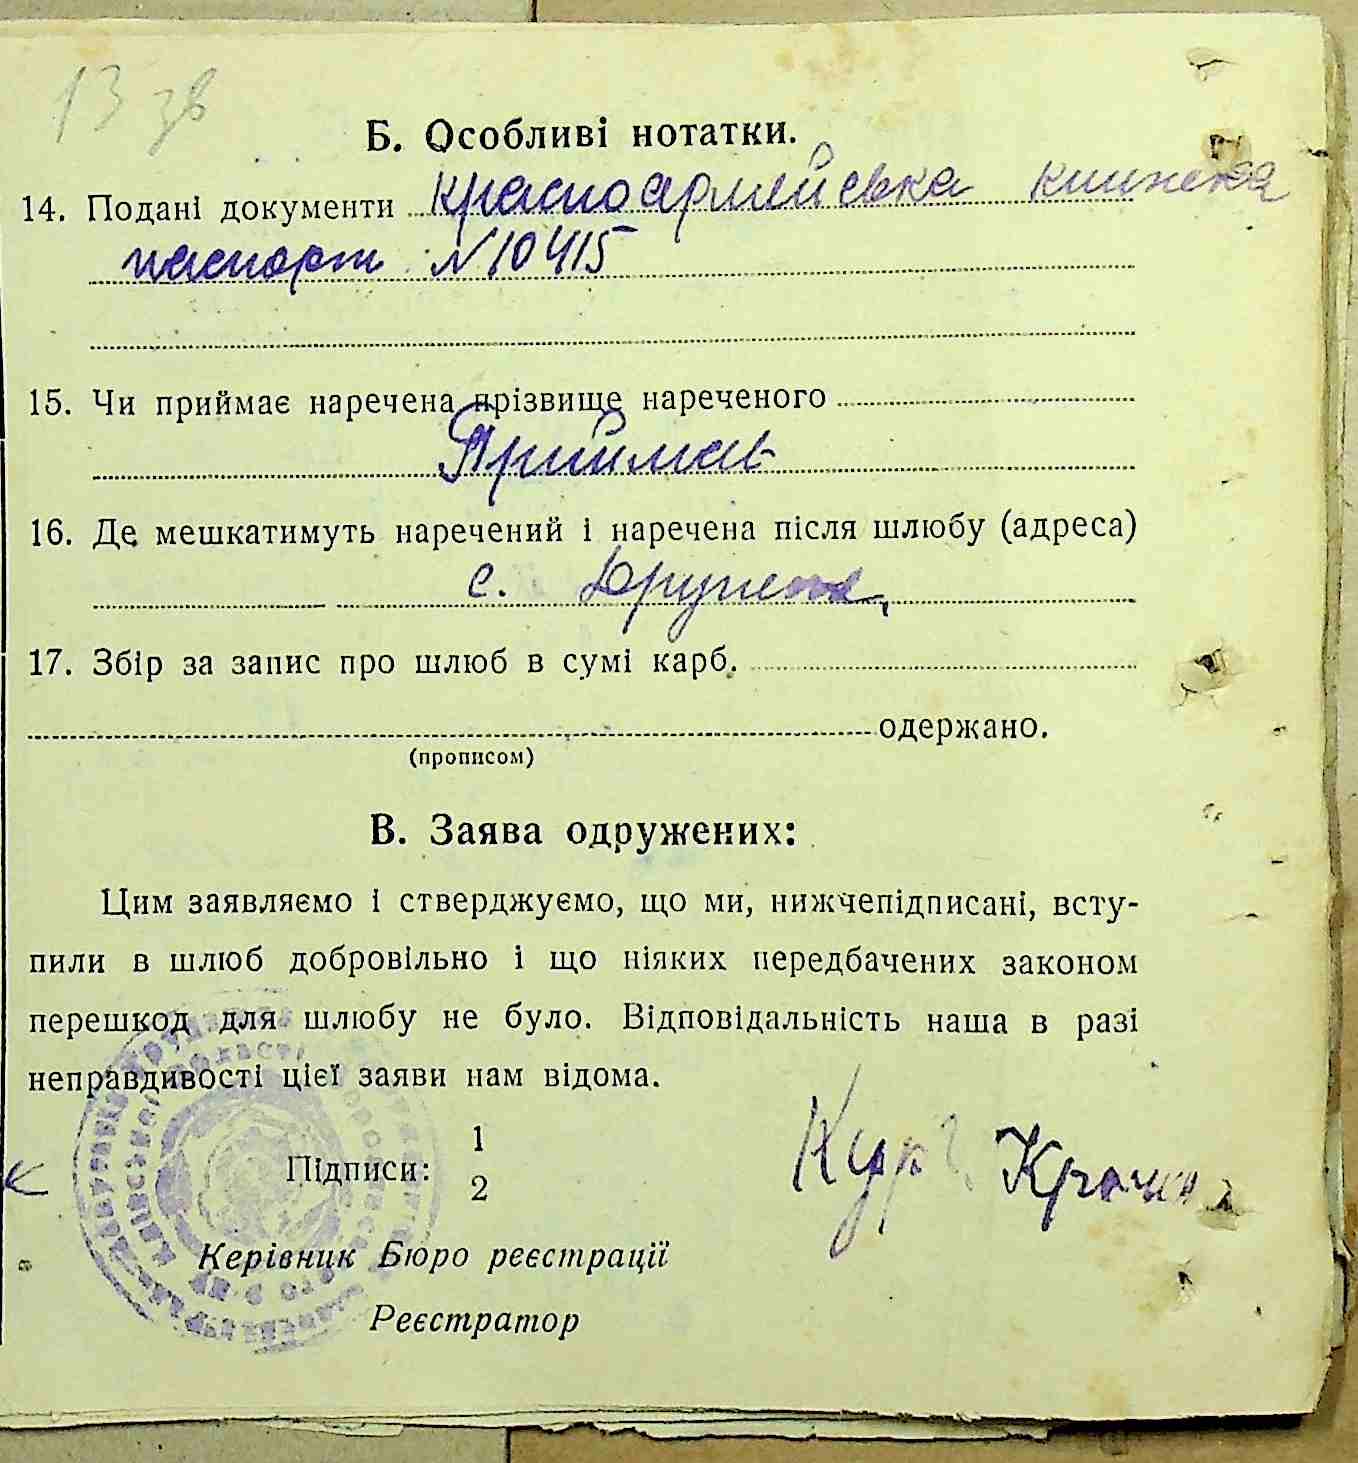 13 зв
Б. Особливі нотатки.
14. Подані документи красноармейська книжека
паспорт N 10415
15. Чи приймає наречена прізвище нареченого
Приймає
16. Де мешкатимуть наречений і наречена після шлюбу (адреса)
с.
17. Збір за запис про шлюб в сумі карб.
одержано.
(прописом)
В. Заява одружених:
Цим заявляємо і стверджуємо, що ми, нижчепідписані, всту-
пили в шлюб добровільно і що ніяких передбачених законом
перешкод для шлюбу не було. Відповідальність наша в разі
неправдивості цієї заяви нам відома.
Підписи: 1
2
Керівник Бюро реєстрації
Реєстратор